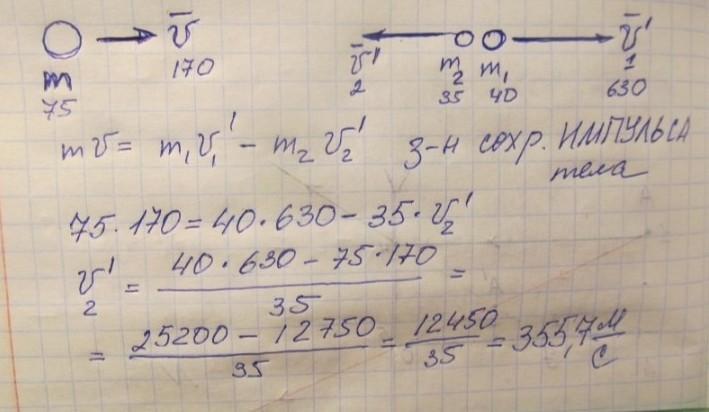 m 75 v̅ 170 v̅'2 m2 35 m1 40 v̅'1 630
mv = m₁v₁' - m₂v₂' з-н сохр. ИМПУЛЬСА
тела
75·170 = 40·630 - 35·v₂'
v₂' = (40·630 - 75·170)/35 =
= (25200 - 12750)/35 = 12450/35 = 355,7 м/с